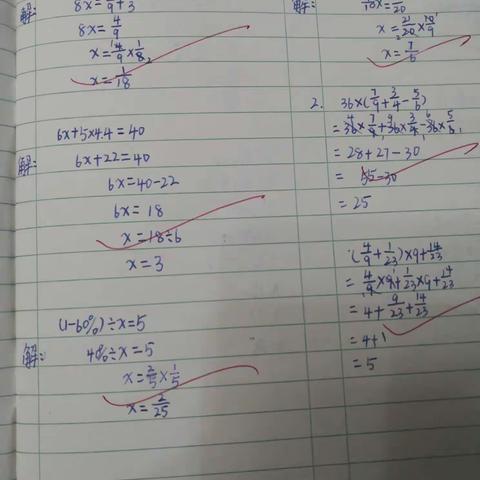 解: 8x=1/9+3
8x=4/9
x=4/9×1/8
x=1/18
6x+5×4.4=40
解: 6x+22=40
6x=40-22
6x=18
x=18÷6
x=3
(1-60%)÷x=5
解: 40%÷x=5
x=2/5×1/5
x=2/25
解:
x=21/20×10/9
x=7/6
2. 36×(7/9+3/4-5/6)
=36×7/9+36×3/4-36×5/6
=28+27-30
=55-30
=25
(4/9+1/23)×9+14/23
=4/9×9+1/23×9+14/23
=4+9/23+14/23
=4+1
=5